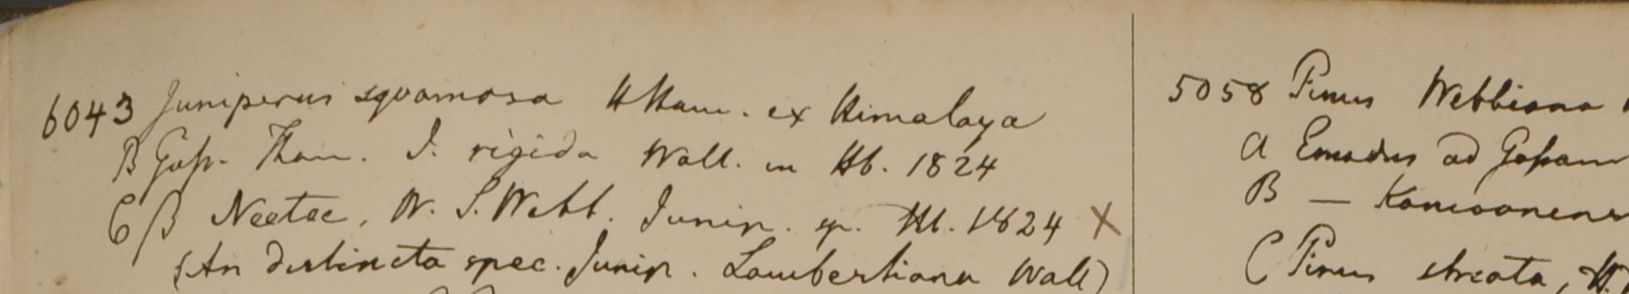 6043 Juniperus squamosa HHam. ex Himalaya
B Gos. Than. J. rigida Wall. in Hb. 1824
C β Neetee, W. S. Webb. Junip. sp. Hb. 1824 X
(An distincta spec. Junip. Lambertiana Wall)
5058 Pinus Webbiana
A Emodus ad Gosain
B —
C Pinus striata, H.